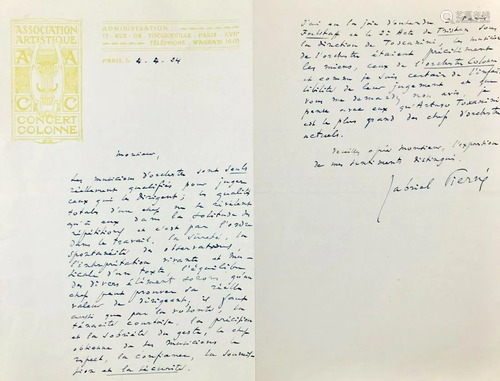 ASSOCIATION
ARTISTIQUE
A A
C C
CONCERT
COLONNE
ADMINISTRATION
13, RUE DE TOCQUEVILLE, PARIS XVIIe
TÉLÉPHONE, WAGRAM
PARIS, le 4.4.24
Monsieur,
Les musiciens d'orchestre sont seuls
réellement qualifiés pour juger
ceux qui le dirigent; les qualités
totales d'un chef ne se révèlent
qu'à eux dans la solitude des
répétitions et c'est par l'ordre
dans le travail, la sûreté, la
spontanéité des observations,
l'interprétation vivante et mu-
sicale d'un texte, l'équilibre
des divers éléments sonores qu'un
chef peut prouver sa réelle
valeur de dirigeant; il faut
aussi que par la volonté, la
ténacité courtoise, la précision
et la sobriété du geste, le chef
obtienne de ses musiciens le
respect, la confiance, la soumis-
sion et la sécurité.
J'ai eu la joie d'entendre
Falstaff et le 2e Acte de Tristan sous
la direction de Toscanini, les musiciens
de l'orchestre étaient précisément
les miens, ceux de l'orchestre Colonne
et comme je suis certain de l'infail-
libilité de leur jugement et que
vous me demandez mon avis, je
pense avec eux qu'Arturo Toscanini
est le plus grand des chefs d'orchestre
actuels.
Veuillez agréer, monsieur, l'expression
de mes sentiments distingués.
Gabriel Pierné